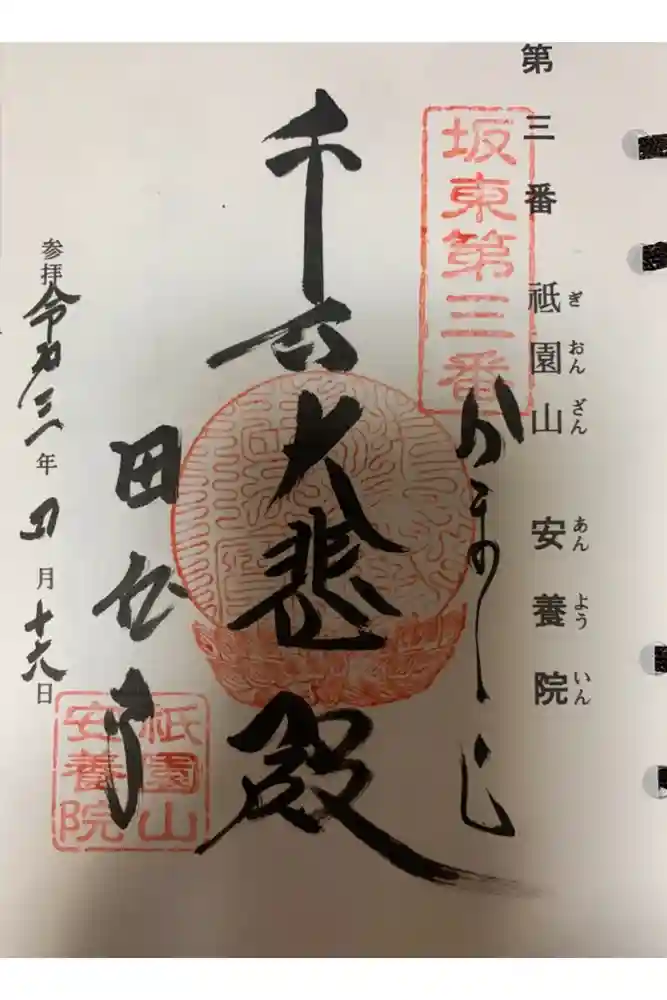 第三番 祇園山 安養院
ぎおんざん あんよういん
坂東第三番
かまくら
千手大悲殿
田代寺
祇園山
安養院
参拝令和三年四月十六日